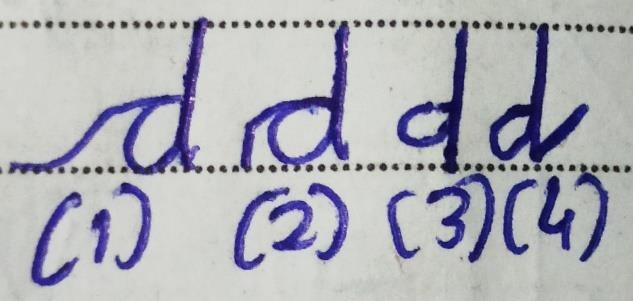 d d d d
(1) (2) (3) (4)